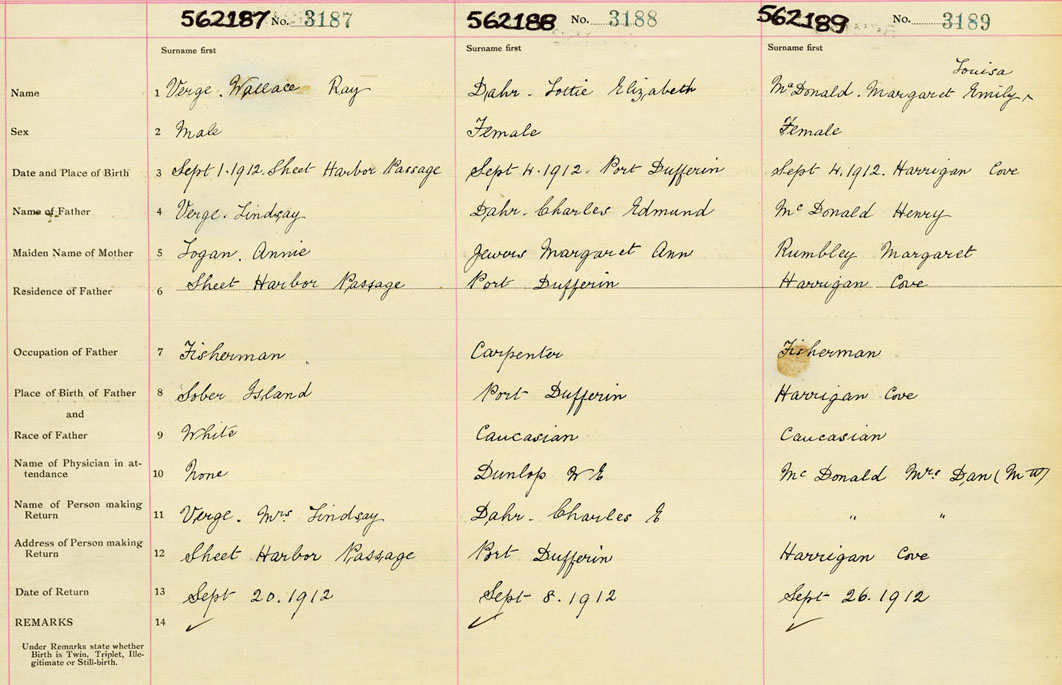 562187 No. 3187 562188 No. 3188 562189 No. 3189
Surname first Surname first Surname first
Louisa
Name 1 Verge. Wallace Ray Dahr. Lottie Elizabeth McDonald. Margaret Emily ^
Sex 2 Male Female Female
Date and Place of Birth 3 Sept 1.1912. Sheet Harbor Passage Sept 4.1912. Port Dufferin Sept 4.1912. Harrigan Cove
Name of Father 4 Verge. Lindsay Dahr. Charles Edmund McDonald Henry
Maiden Name of Mother 5 Logan. Annie Jewers Margaret Ann Rumbley Margaret
Residence of Father 6 Sheet Harbor Passage Port Dufferin Harrigan Cove
Occupation of Father 7 Fisherman Carpenter Fisherman
Place of Birth of Father 8 Sober Island Port Dufferin Harrigan Cove
and
Race of Father 9 White Caucasian Caucasian
Name of Physician in at-
tendance 10 None Dunlop W E McDonald Mrs. Dan (M W)
Name of Person making
Return 11 Verge. Mrs Lindsay Dahr. Charles E " "
Address of Person making
Return 12 Sheet Harbor Passage Port Dufferin Harrigan Cove
Date of Return 13 Sept 20.1912 Sept 8.1912 Sept 26.1912
REMARKS 14 ✓ ✓ ✓
Under Remarks state whether
Birth is Twin, Triplet, Ille-
gitimate or Still-birth.